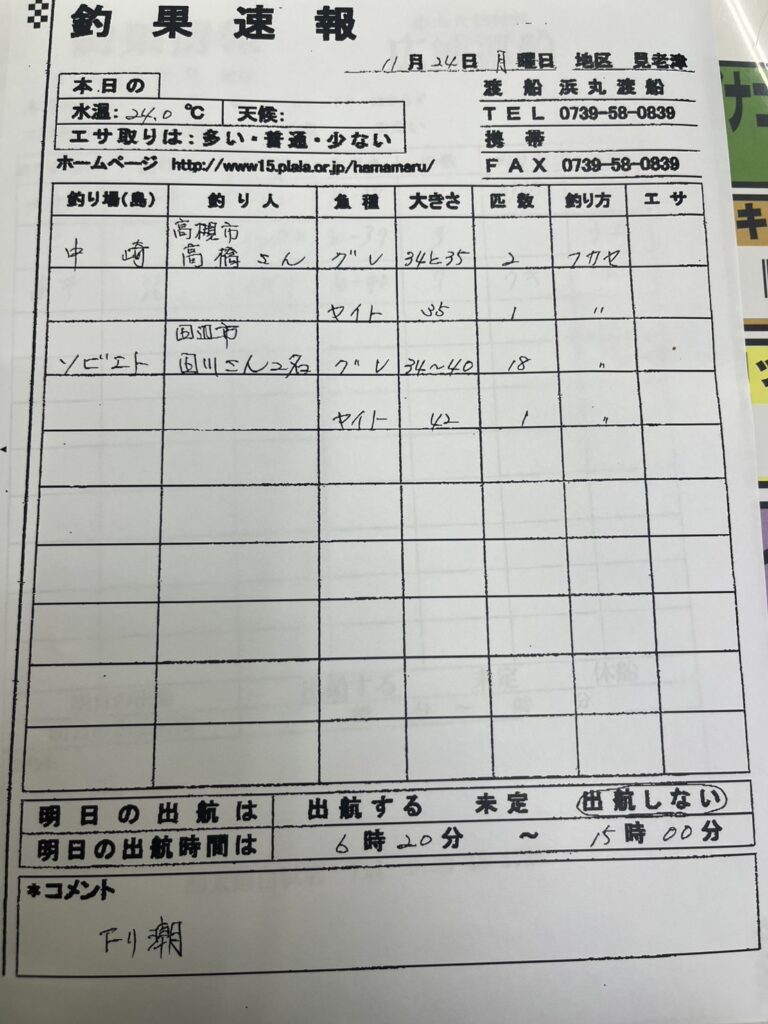 釣果速報
11月24日 月曜日 地区 見老津
本日の
水温:24.0℃ 天候:
エサ取りは:多い・普通・少ない
ホームページ http://www15.plala.or.jp/hamamaru/
渡船 浜丸渡船
TEL 0739-58-0839
携帯
FAX 0739-58-0839
釣り場(島) 釣り人 魚種 大きさ 匹数 釣り方 エサ
高槻市
中崎 高橋さん グレ 34と35 2 フカセ
ヤイト 35 1 〃
田辺市
ソビエト 田川さん2名 グレ 34~40 18 〃
ヤイト 42 1 〃
明日の出航は 出航する 未定 出航しない
明日の出航時間は 6時20分 ~ 15時00分
*コメント
下り潮